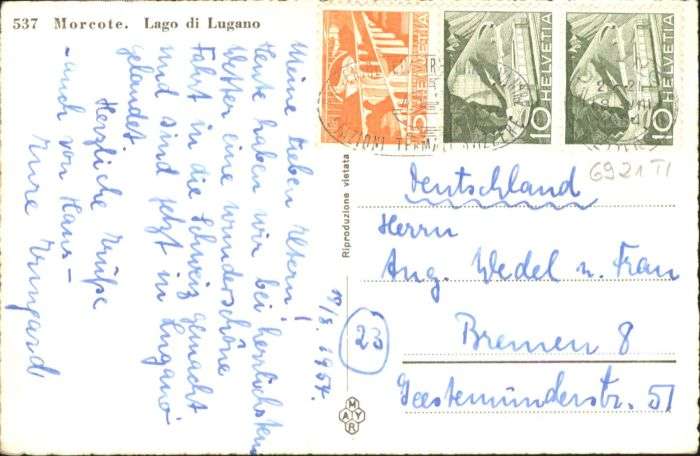 537 Morcote. Lago di Lugano
Meine lieben Eltern!
Heute haben wir bei herrlichstem
Wetter eine wunderschöne
Fahrt in die Schweiz gemacht
und sind jetzt in Lugano
gelandet.
Herzliche Grüße
– auch von Hans –
Eure Irmgard
19/8. 1954.
Riproduzione vietata
MAYR
5 HELVETIA
10 HELVETIA
10 HELVETIA
6921 TI
Deutschland
Herrn
Ang. Wedel u. Frau
23
Bremen 8
Geestemünderstr. 51